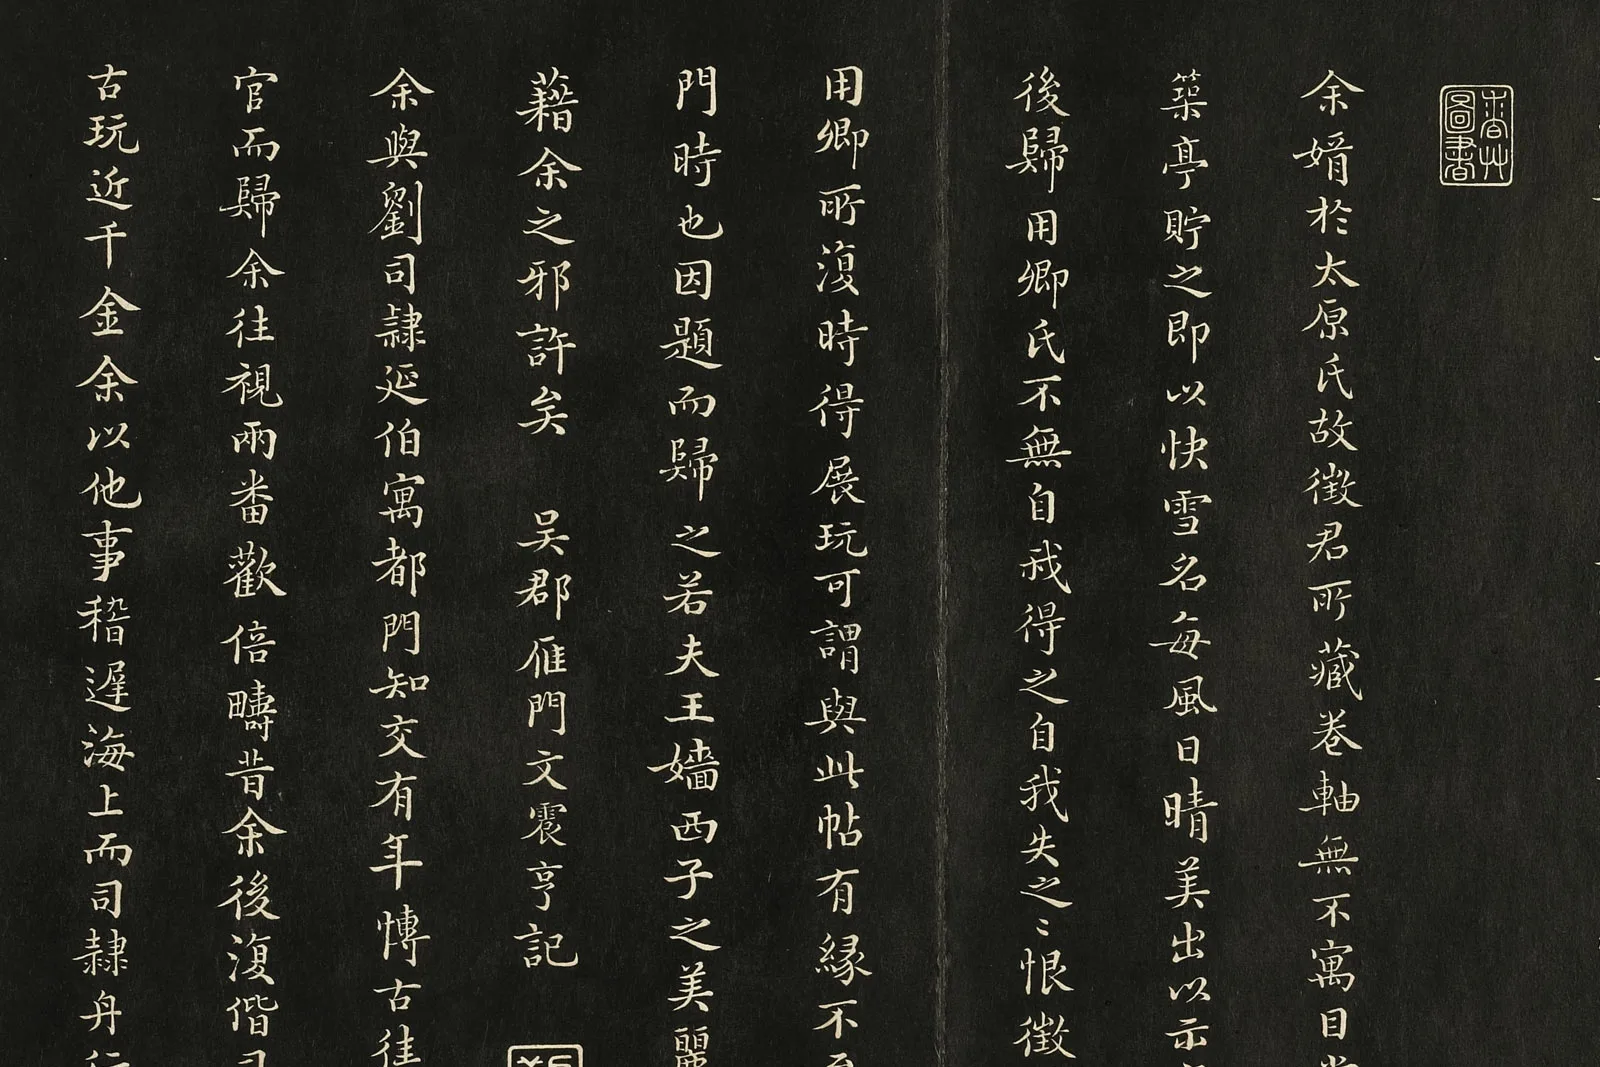 余婿於太原氏故徵君所藏卷軸無不寓目
築亭貯之即以快雪名每風日晴美出以示
後歸用卿氏不無自我得之自我失之〻恨徵
用卿所復時得展玩可謂與此帖有緣不
門時也因題而歸之若夫王嬙西子之美麗
藉余之邪許矣 吴郡雁門文震亨記
余與劉司隷延伯寓都門知交有年博古往
官而歸余往視兩番歡倍疇昔余後復偕司
古玩近千金余以他事稽遲海上而司隷舟行